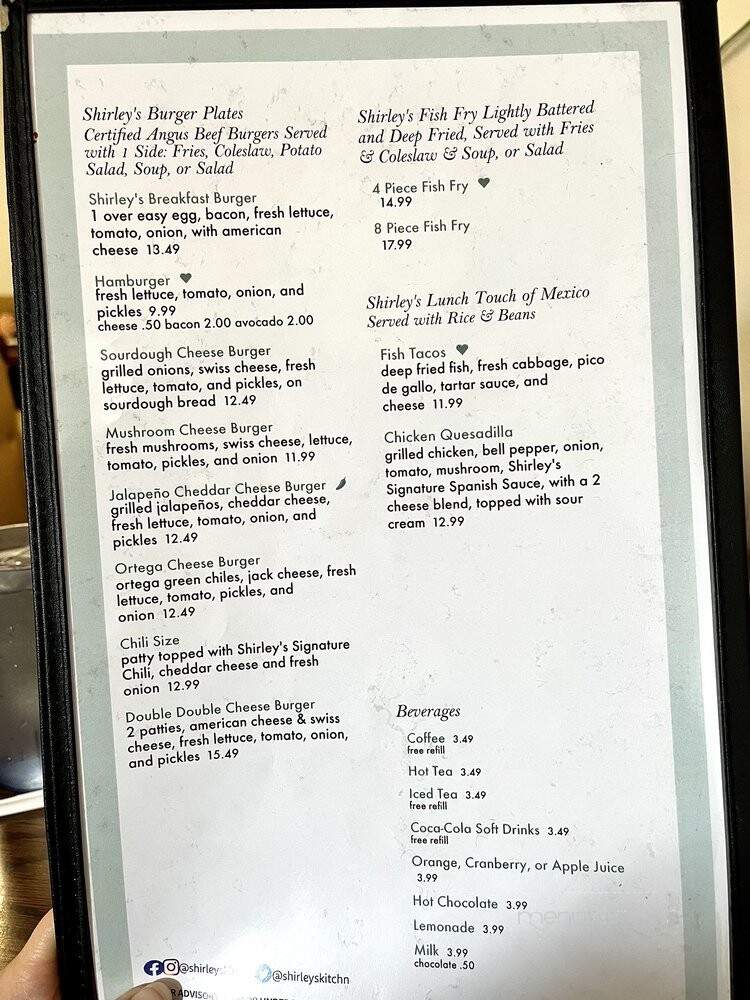 Shirley's Burger Plates
Certified Angus Beef Burgers Served
with 1 Side: Fries, Coleslaw, Potato
Salad, Soup, or Salad
Shirley's Breakfast Burger
1 over easy egg, bacon, fresh lettuce,
tomato, onion, with american
cheese 13.49
Hamburger
fresh lettuce, tomato, onion, and
pickles 9.99
cheese .50 bacon 2.00 avocado 2.00
Sourdough Cheese Burger
grilled onions, swiss cheese, fresh
lettuce, tomato, and pickles, on
sourdough bread 12.49
Mushroom Cheese Burger
fresh mushrooms, swiss cheese, lettuce,
tomato, pickles, and onion 11.99
Jalapeño Cheddar Cheese Burger
grilled jalapeños, cheddar cheese,
fresh lettuce, tomato, onion, and
pickles 12.49
Ortega Cheese Burger
ortega green chiles, jack cheese, fresh
lettuce, tomato, pickles, and
onion 12.49
Chili Size
patty topped with Shirley's Signature
Chili, cheddar cheese and fresh
onion 12.99
Double Double Cheese Burger
2 patties, american cheese & swiss
cheese, fresh lettuce, tomato, onion,
and pickles 15.49
Shirley's Fish Fry Lightly Battered
and Deep Fried, Served with Fries
& Coleslaw & Soup, or Salad
4 Piece Fish Fry
14.99
8 Piece Fish Fry
17.99
Shirley's Lunch Touch of Mexico
Served with Rice & Beans
Fish Tacos
deep fried fish, fresh cabbage, pico
de gallo, tartar sauce, and
cheese 11.99
Chicken Quesadilla
grilled chicken, bell pepper, onion,
tomato, mushroom, Shirley's
Signature Spanish Sauce, with a 2
cheese blend, topped with sour
cream 12.99
Beverages
Coffee 3.49
free refill
Hot Tea 3.49
Iced Tea 3.49
free refill
Coca-Cola Soft Drinks 3.49
free refill
Orange, Cranberry, or Apple Juice
3.99
Hot Chocolate 3.99
Lemonade 3.99
Milk 3.99
chocolate .50
@shirleyskitchn